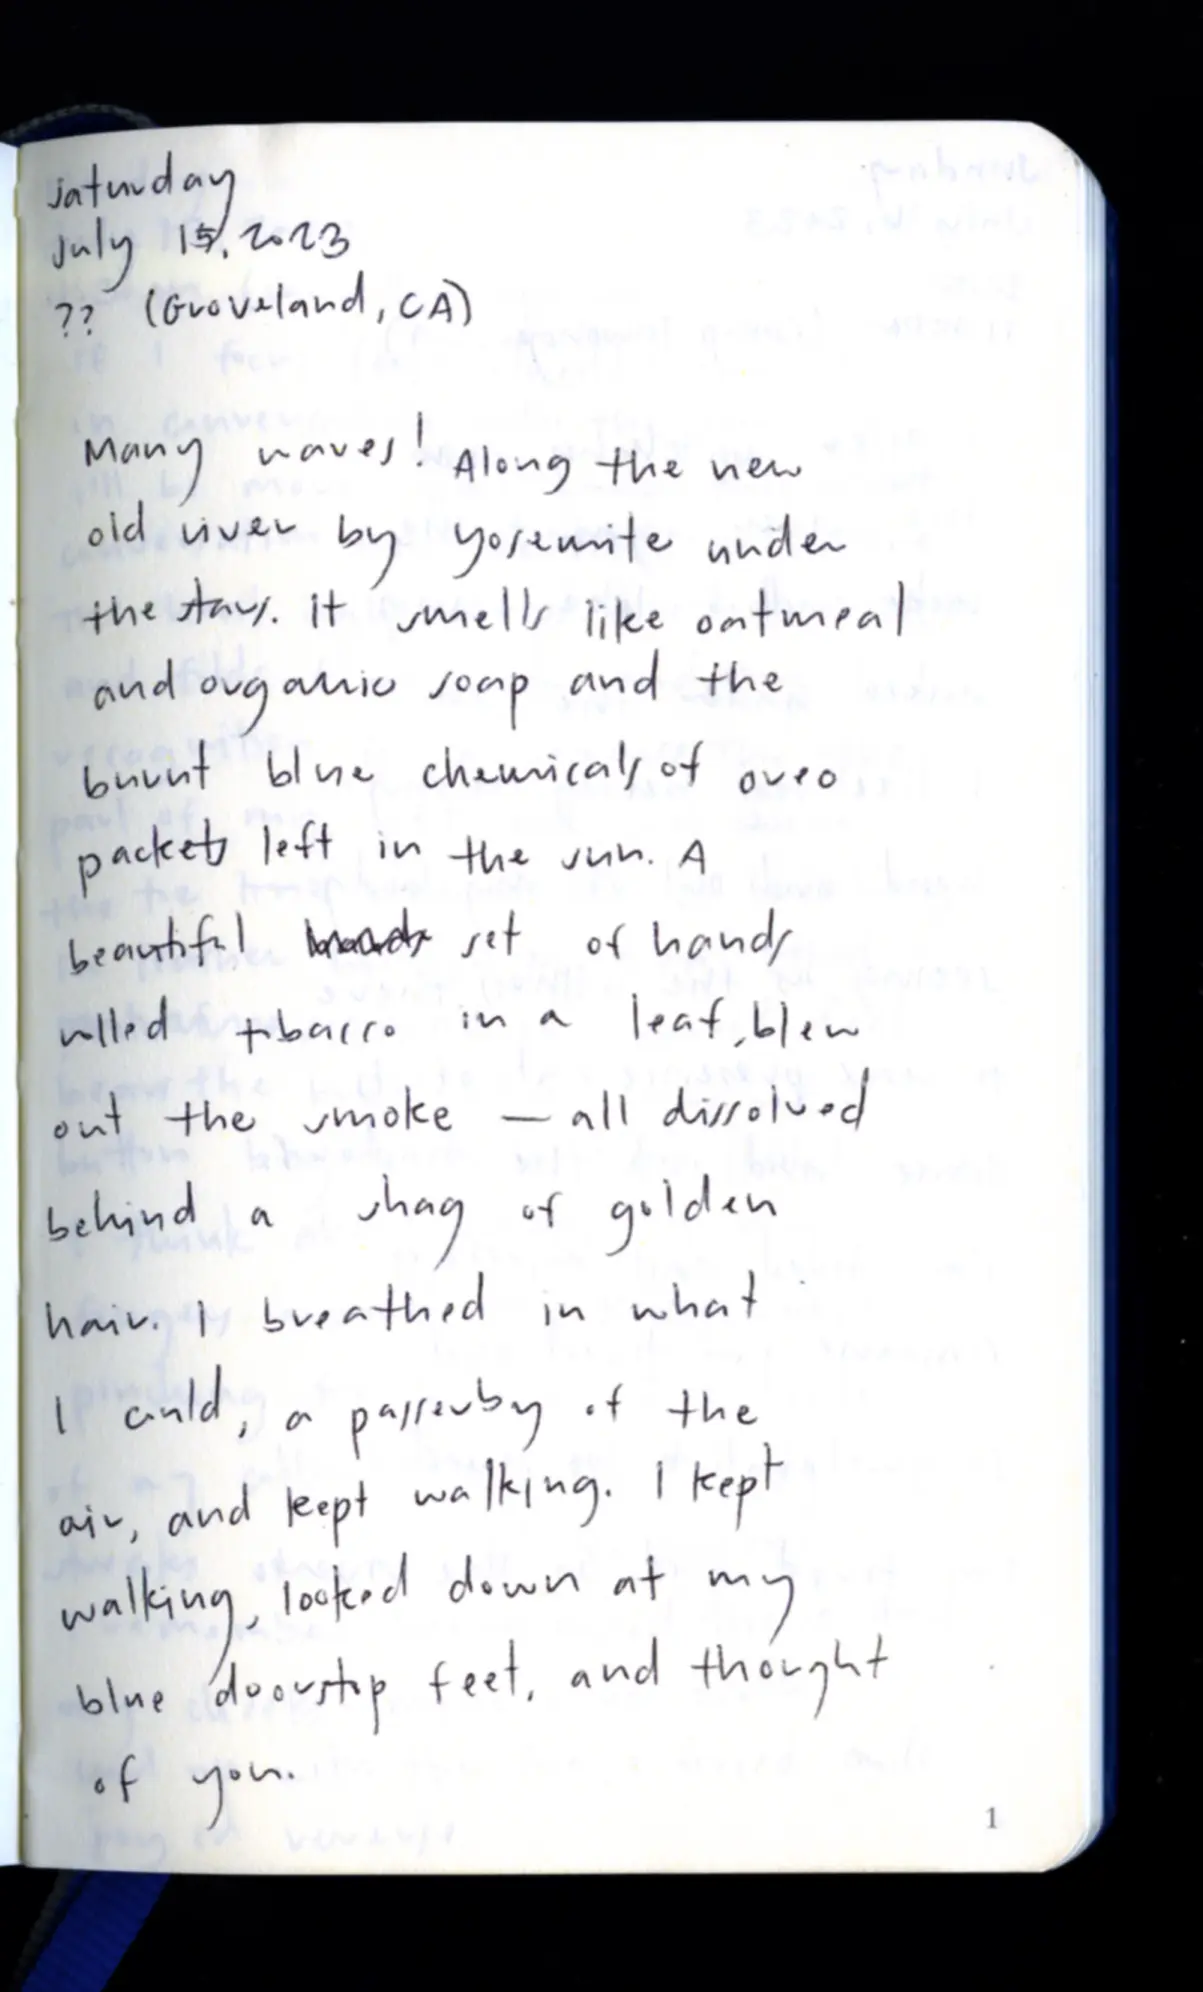 Saturday
July 15, 2023
?? (Groveland, CA)
Many waves! Along the new
old river by Yosemite under
the stars. it smells like oatmeal
and organic soap and the
burnt blue chemicals of oreo
packets left in the sun. A
beautiful set of hands
rolled tobacco in a leaf, blew
out the smoke — all dissolved
behind a shag of golden
hair. I breathed in what
I could, a passerby of the
air, and kept walking. I kept
walking, looked down at my
blue doorstop feet, and thought
of you.
1